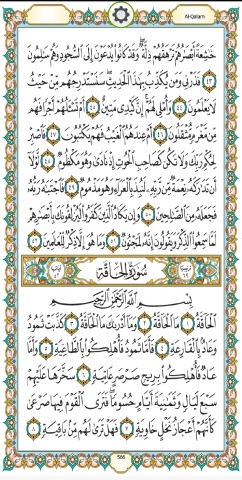 Al-Qalam
خَٰشِعَةً أَبْصَٰرُهُمْ تَرْهَقُهُمْ ذِلَّةٌ ۖ وَقَدْ كَانُوا۟ يُدْعَوْنَ إِلَى ٱلسُّجُودِ وَهُمْ سَٰلِمُونَ
٤٣ فَذَرْنِى وَمَن يُكَذِّبُ بِهَٰذَا ٱلْحَدِيثِ ۖ سَنَسْتَدْرِجُهُم مِّنْ حَيْثُ
لَا يَعْلَمُونَ ٤٤ وَأُمْلِى لَهُمْ ۚ إِنَّ كَيْدِى مَتِينٌ ٤٥ أَمْ تَسْـَٔلُهُمْ أَجْرًا فَهُم
مِّن مَّغْرَمٍ مُّثْقَلُونَ ٤٦ أَمْ عِندَهُمُ ٱلْغَيْبُ فَهُمْ يَكْتُبُونَ ٤٧ فَٱصْبِرْ
لِحُكْمِ رَبِّكَ وَلَا تَكُن كَصَاحِبِ ٱلْحُوتِ إِذْ نَادَىٰ وَهُوَ مَكْظُومٌ ٤٨ لَّوْلَآ
أَن تَدَٰرَكَهُۥ نِعْمَةٌ مِّن رَّبِّهِۦ لَنُبِذَ بِٱلْعَرَآءِ وَهُوَ مَذْمُومٌ ٤٩ فَٱجْتَبَٰهُ رَبُّهُۥ
فَجَعَلَهُۥ مِنَ ٱلصَّٰلِحِينَ ٥٠ وَإِن يَكَادُ ٱلَّذِينَ كَفَرُوا۟ لَيُزْلِقُونَكَ بِأَبْصَٰرِهِمْ
لَمَّا سَمِعُوا۟ ٱلذِّكْرَ وَيَقُولُونَ إِنَّهُۥ لَمَجْنُونٌ ٥١ وَمَا هُوَ إِلَّا ذِكْرٌ لِّلْعَٰلَمِينَ ٥٢
سُورَةُ الحَاقَّةِ
بِسْمِ ٱللَّهِ ٱلرَّحْمَٰنِ ٱلرَّحِيمِ
ٱلْحَآقَّةُ ١ مَا ٱلْحَآقَّةُ ٢ وَمَآ أَدْرَىٰكَ مَا ٱلْحَآقَّةُ ٣ كَذَّبَتْ ثَمُودُ
وَعَادٌۢ بِٱلْقَارِعَةِ ٤ فَأَمَّا ثَمُودُ فَأُهْلِكُوا۟ بِٱلطَّاغِيَةِ ٥ وَأَمَّا
عَادٌ فَأُهْلِكُوا۟ بِرِيحٍ صَرْصَرٍ عَاتِيَةٍ ٦ سَخَّرَهَا عَلَيْهِمْ
سَبْعَ لَيَالٍ وَثَمَٰنِيَةَ أَيَّامٍ حُسُومًا فَتَرَى ٱلْقَوْمَ فِيهَا صَرْعَىٰ
كَأَنَّهُمْ أَعْجَازُ نَخْلٍ خَاوِيَةٍ ٧ فَهَلْ تَرَىٰ لَهُم مِّنۢ بَاقِيَةٍ ٨
566